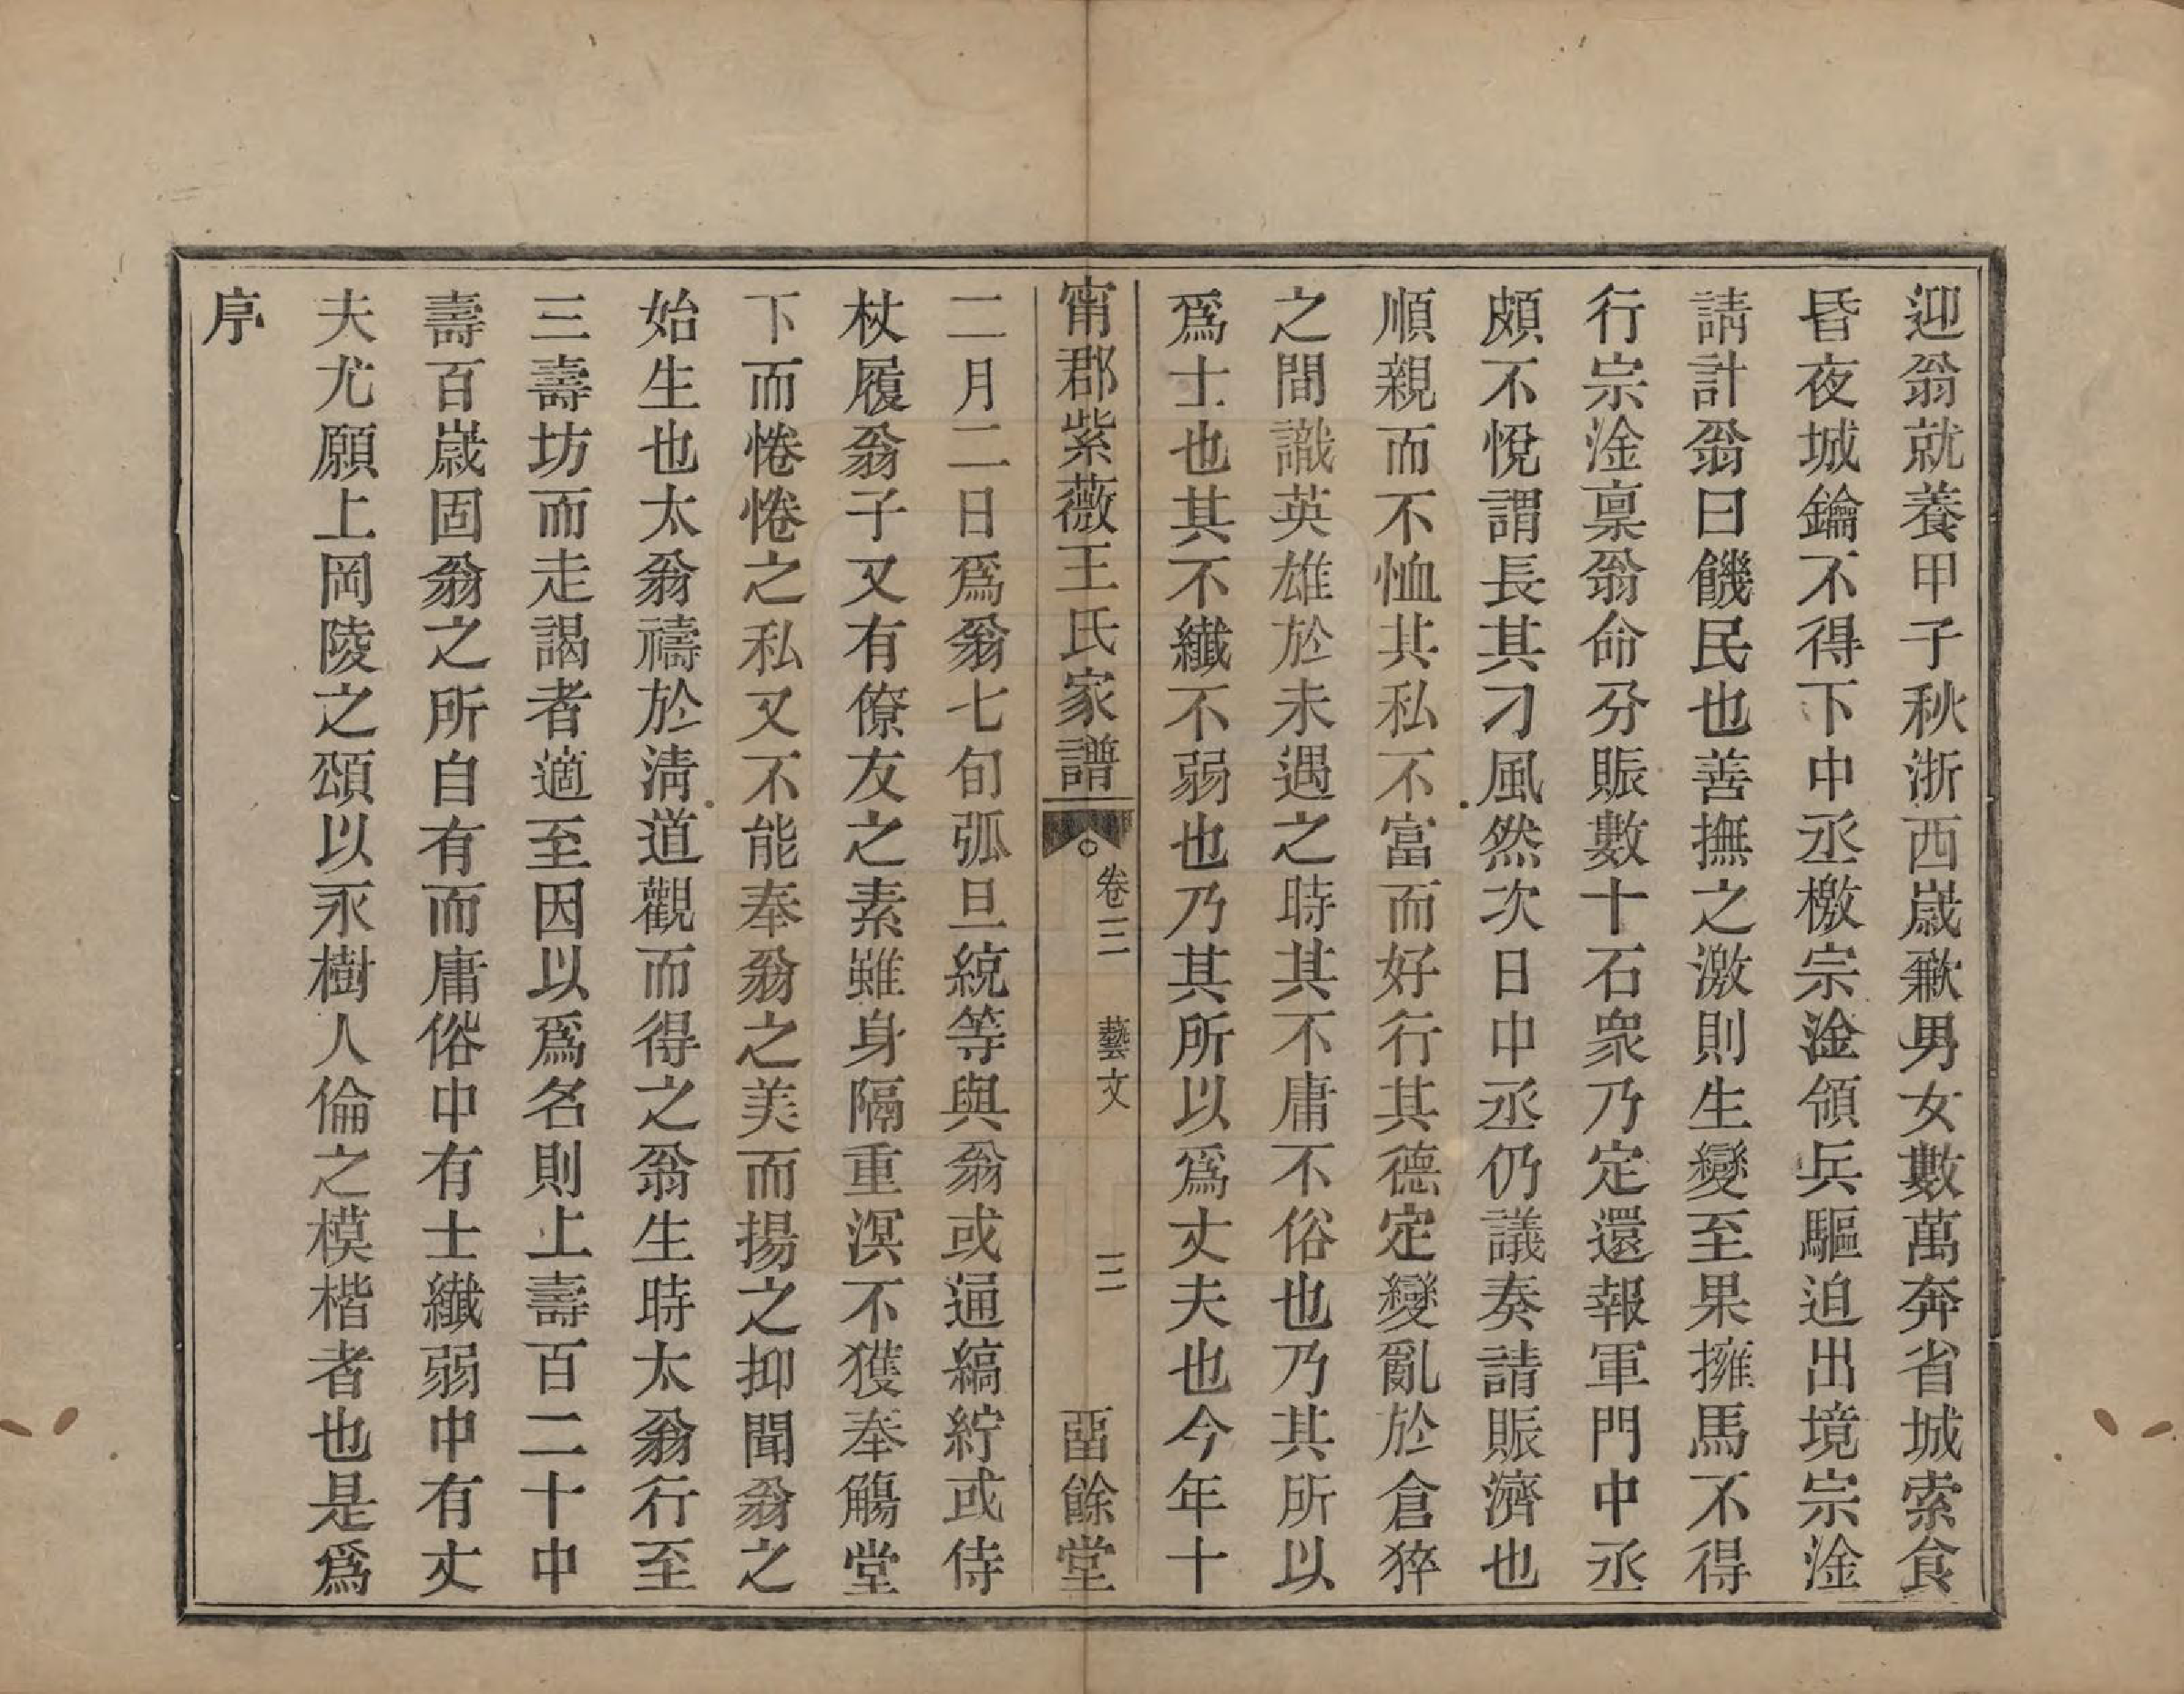 迎翁就養甲子秋浙西歲歉男女數萬奔省城索食
昏夜城鑰不得下中丞檄宗淦領兵驅迫出境宗淦
請計翁曰饑民也善撫之激則生變至果擁馬不得
行宗淦稟翁命分賑數十石衆乃定還報軍門中丞
頗不悅謂長其刁風然次日中丞仍議奏請賑濟也
順親而不恤其私不富而好行其德定變亂於倉猝
之間識英雄於未遇之時其不庸不俗也乃其所以
爲士也其不纖不弱也乃其所以爲丈夫也今年十
甯郡紫薇王氏家譜 卷三 藝文 三 畱餘堂
二月二日爲翁七旬弧旦統等與翁或通縞紵或侍
杖履翁子又有僚友之素雖身隔重溟不獲奉觴堂
下而惓惓之私又不能奉翁之美而揚之抑聞翁之
始生也太翁禱於淸道觀而得之翁生時太翁行至
三壽坊而走謁者適至因以爲名則上壽百二十中
壽百歲固翁之所自有而庸俗中有士纖弱中有丈
夫尤願上岡陵之頌以永樹人倫之模楷者也是爲
序